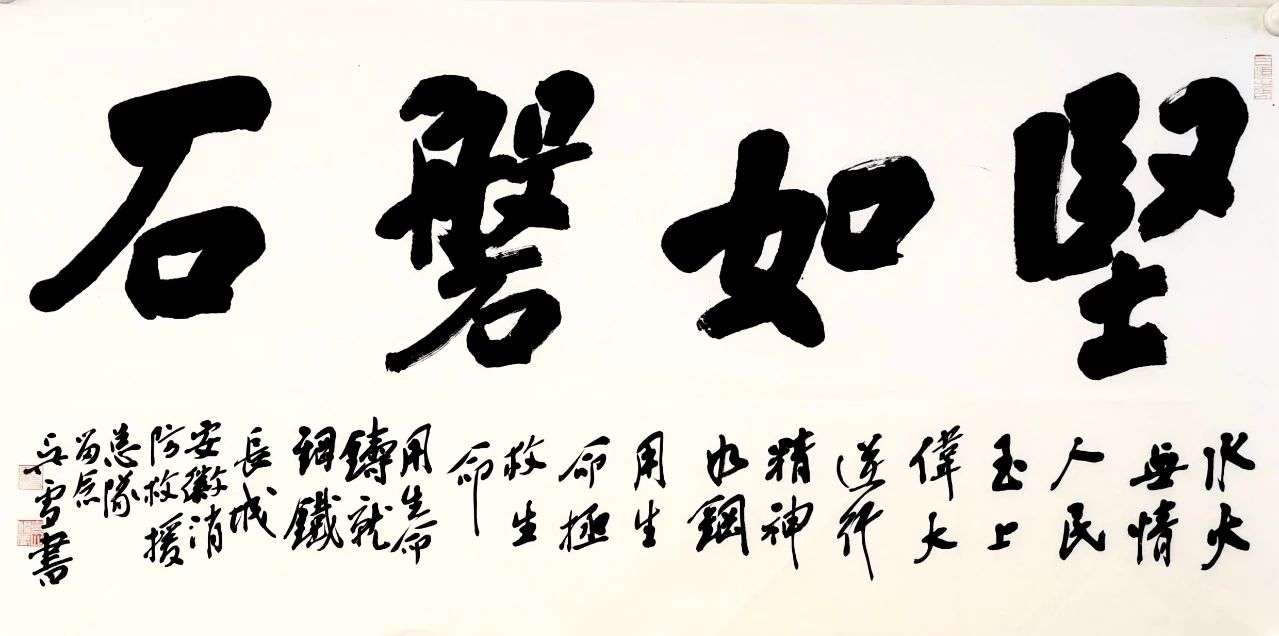 堅如磐石
水火
無情
人民
至上
偉大
逆行
精神
如鋼
用生
命拯
救生
命
用生命
鑄就
鋼鐵
長城
安徽消
防救援
總隊
留念
吳雪書